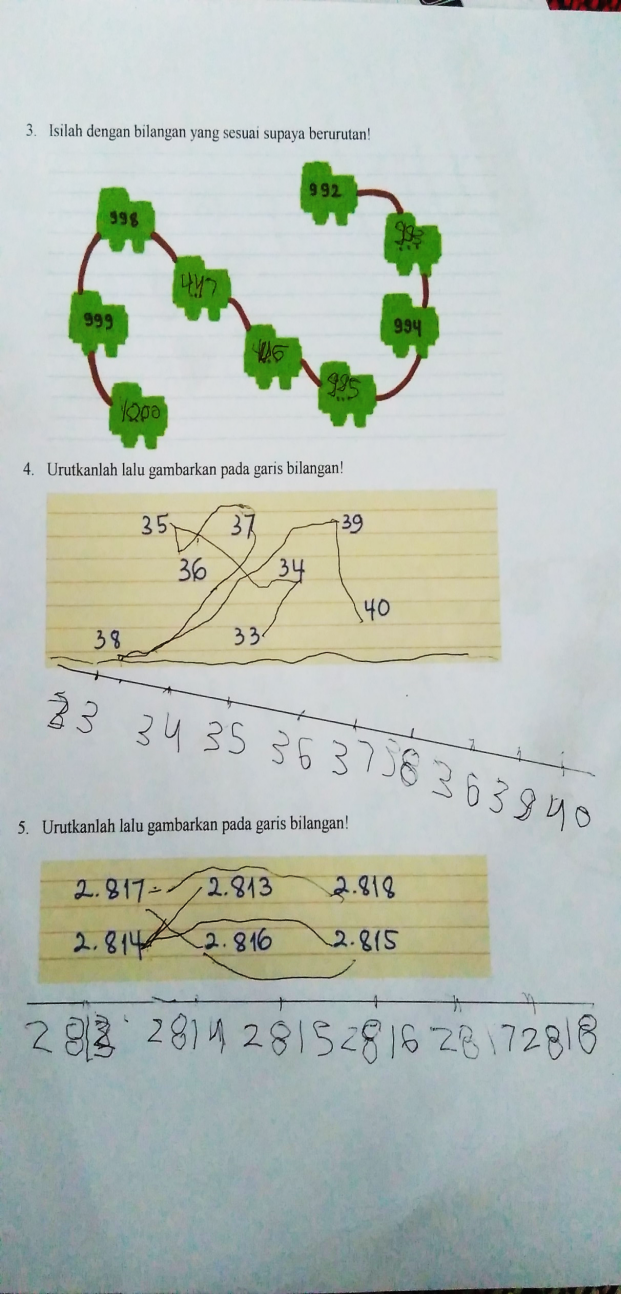 3. Isilah dengan bilangan yang sesuai supaya berurutan!
992
998
993
447
999
994
995
1000
4. Urutkanlah lalu gambarkan pada garis bilangan!
35 37 39
36 34
40
38 33
33 34 35 36 37 38 36 39 40
5. Urutkanlah lalu gambarkan pada garis bilangan!
2.817 2.813 2.818
2.814 2.816 2.815
2813 2814 2815 2816 2817 2818